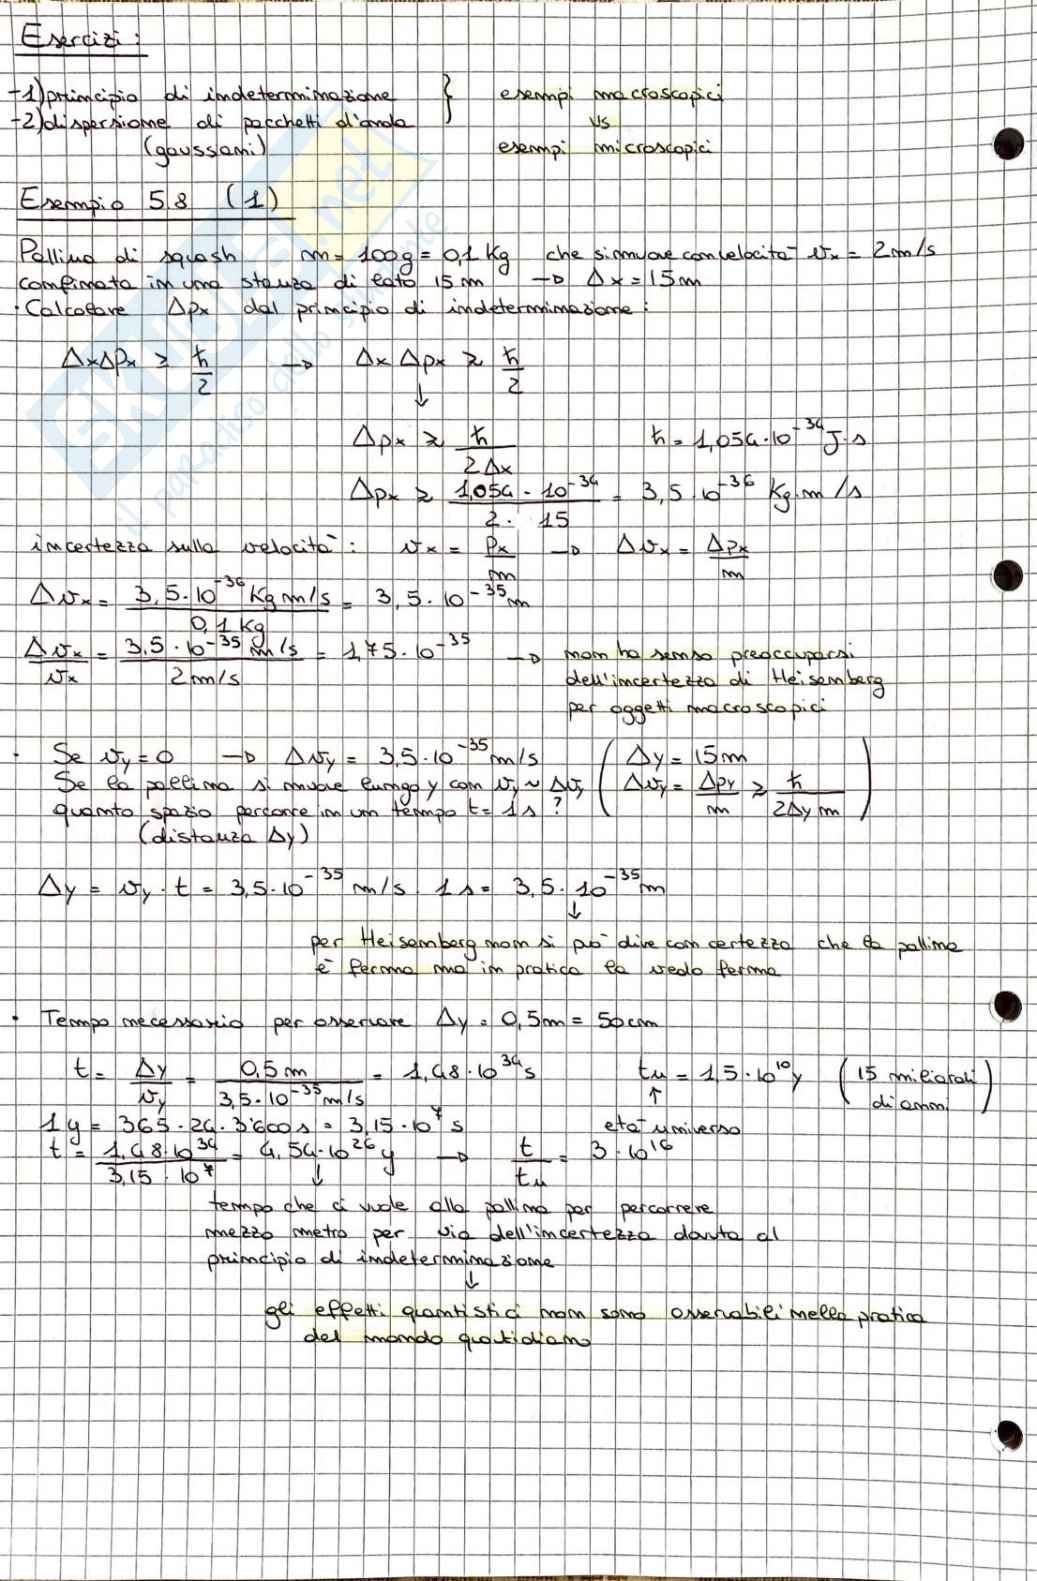 Esercizi:
-1) principio di indeterminazione } esempi macroscopici
-2) dispersione di pacchetti d'onda vs
(gaussiani) esempi microscopici
Esempio 5.8 (1)
Pallina di squash m = 100g = 0,1 Kg che si muove con velocità vx = 2m/s
confinata in una stanza di lato 15 m → Δx = 15m
· Calcolare Δpx dal principio di indeterminazione:
ΔxΔPx ≥ ħ/2 → Δx Δpx ≥ ħ/2
↓
Δpx ≥ ħ/2Δx ħ = 1,054·10^-34 J·s
Δpx ≥ 1,054·10^-34/2·15 = 3,5·10^-36 Kg·m/s
incertezza sulla velocità: vx = Px/m → Δvx = ΔPx/m
Δvx = 3,5·10^-36 Kg m/s/0,1 Kg = 3,5·10^-35 m
Δvx/vx = 3,5·10^-35 m/s/2m/s = 1,75·10^-35 → non ha senso preoccuparsi
dell'incertezza di Heisemberg
per oggetti macroscopici
· Se vy = 0 → Δvy = 3,5·10^-35 m/s ( Δy = 15m
Se la pallina si muove lungo y con vy ~ Δvy Δvy = Δpy/m ≥ ħ/2Δy m )
quanto spazio percorre in un tempo t = 1s ?
(distanza Δy)
Δy = vy · t = 3,5·10^-35 m/s · 1s = 3,5·10^-35 m
↓
per Heisemberg non si può dire con certezza che la pallina
è ferma ma in pratica la vedo ferma
· Tempo necessario per osservare Δy = 0,5m = 50cm
t = Δy/vy = 0,5 m/3,5·10^-35 m/s = 1,48·10^34 s tu = 1,5·10^10 y (15 miliardi
di anni)
↑
1y = 365·24·3600s = 3,15·10^7 s età universo
t = 1,48·10^34/3,15·10^7 = 4,54·10^26 y → t/tu = 3·10^16
↓
tempo che ci vuole alla pallina per percorrere
mezzo metro per via dell'incertezza dovuta al
principio di indeterminazione
↓
gli effetti quantistici non sono osservabili nella pratica
del mondo quotidiano
SKUOLA.net
il paradiso dello studente